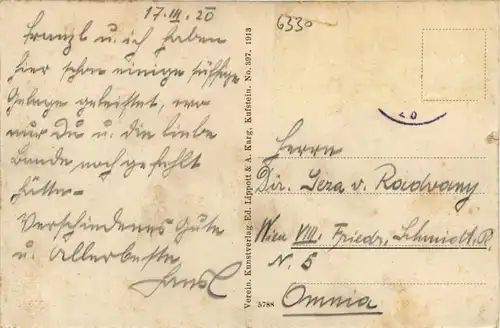 17.III.20
Franzl u. ich haben
hier schon einige süffige
Gelage geleistet, wo
nur Du u. die liebe
Bande noch gefehlt
hätte.
Verschiedenes Gute
u. Allerbeste
Hansl
6330
Verein. Kunstverlag Ed. Lippott & A. Karg, Kufstein. No. 397. 1913
5788
20
Herrn
Dir. Geza v. Radvany
Wien VIII, Friedr. Schmidt. Pl
N. 5
Omnia